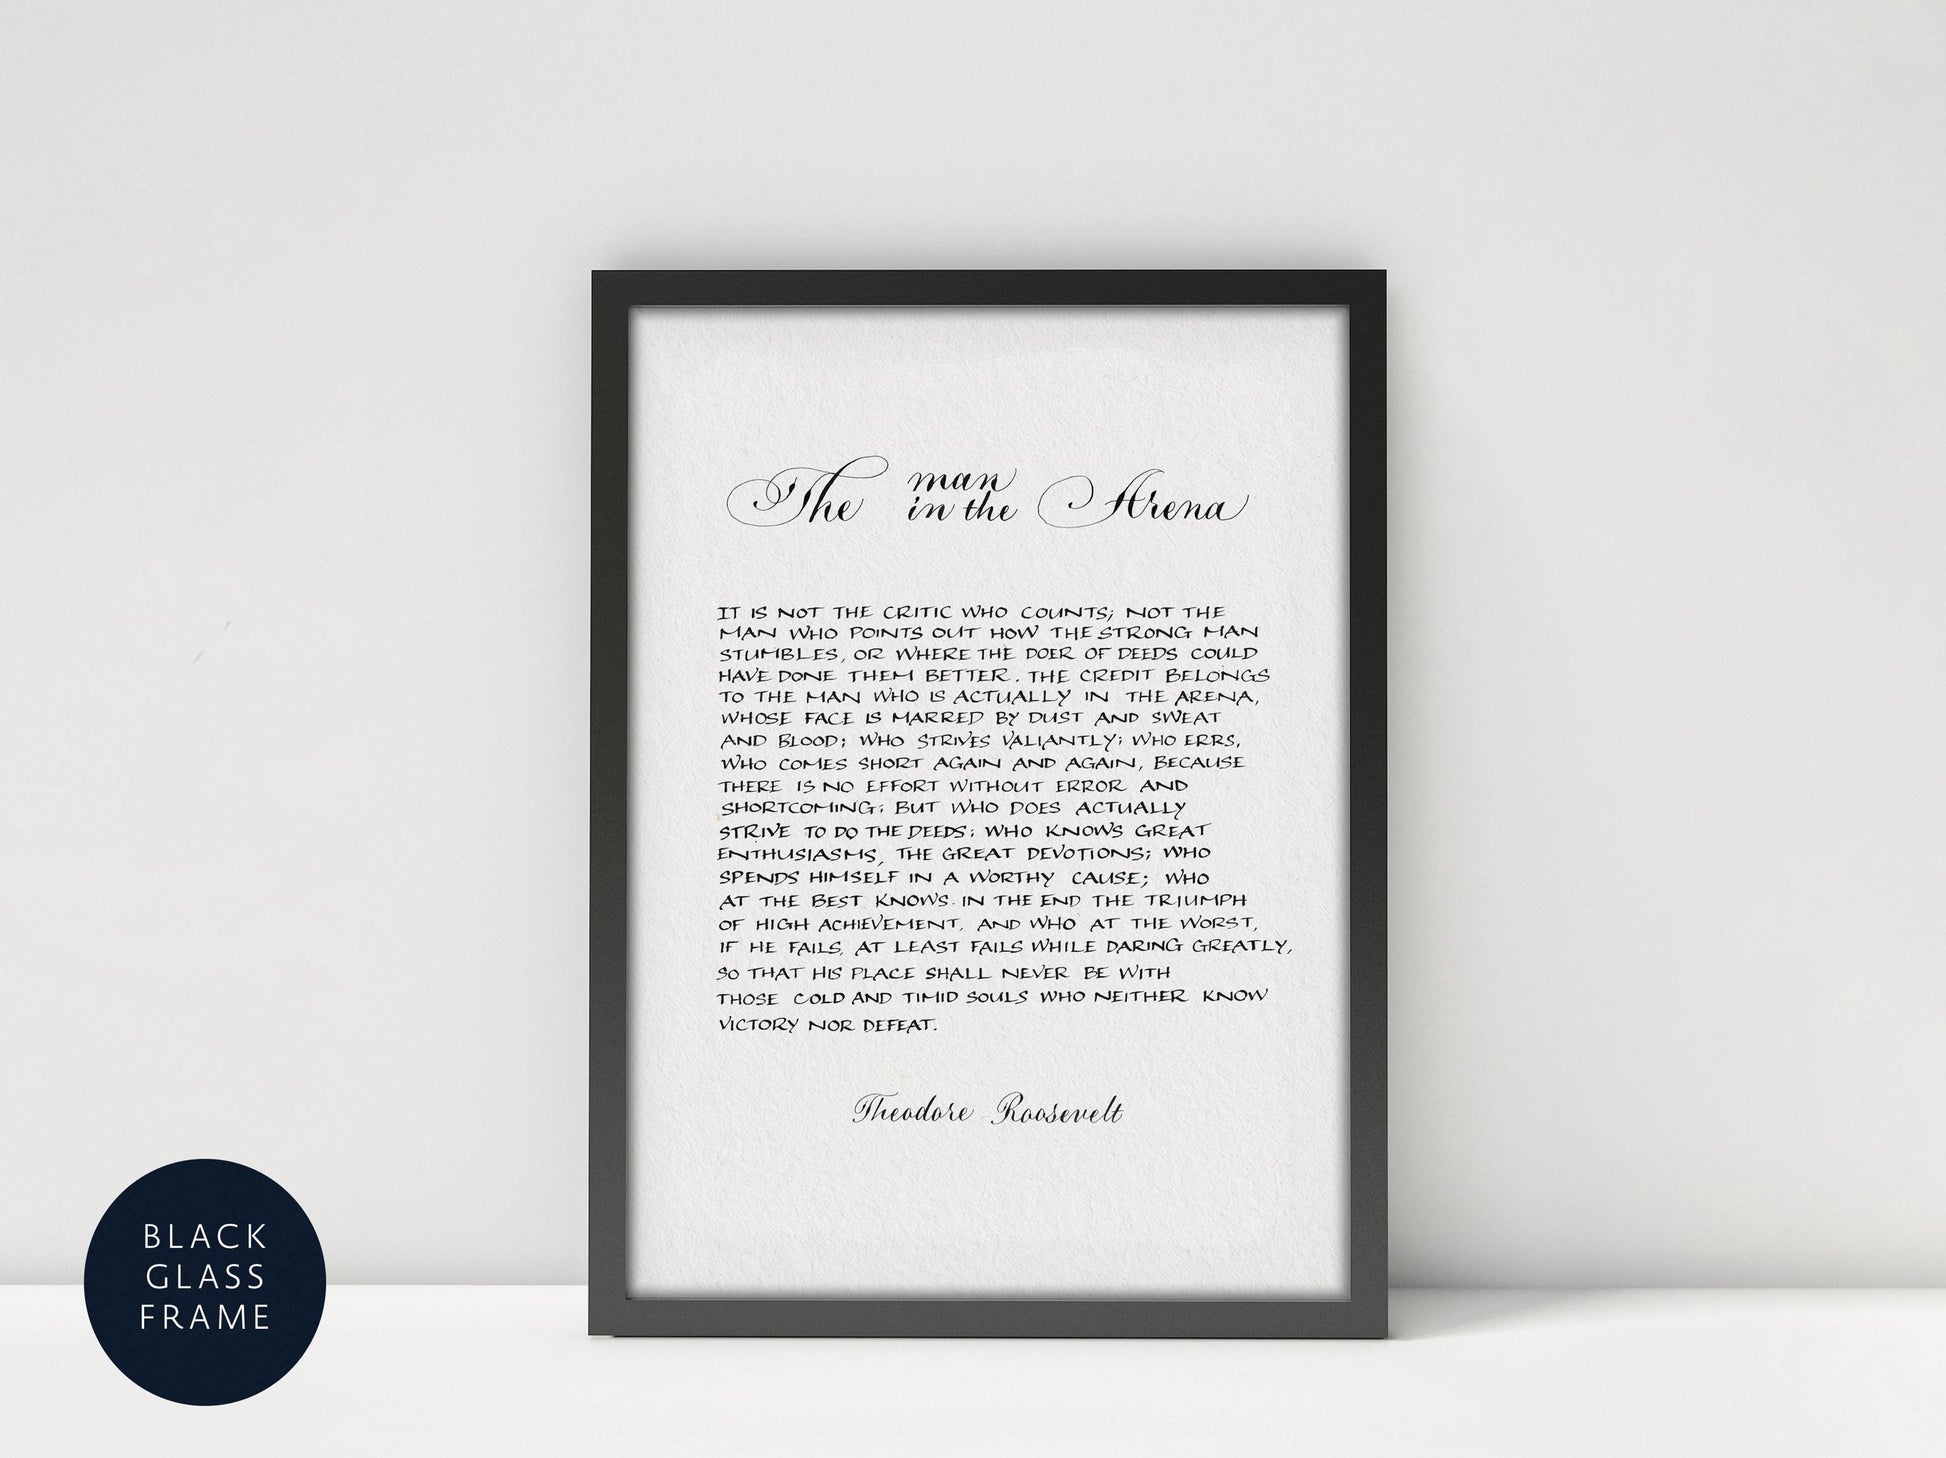 The man in the Arena
IT IS NOT THE CRITIC WHO COUNTS; NOT THE
MAN WHO POINTS OUT HOW THE STRONG MAN
STUMBLES, OR WHERE THE DOER OF DEEDS COULD
HAVE DONE THEM BETTER. THE CREDIT BELONGS
TO THE MAN WHO IS ACTUALLY IN THE ARENA,
WHOSE FACE IS MARRED BY DUST AND SWEAT
AND BLOOD; WHO STRIVES VALIANTLY; WHO ERRS,
WHO COMES SHORT AGAIN AND AGAIN, BECAUSE
THERE IS NO EFFORT WITHOUT ERROR AND
SHORTCOMING; BUT WHO DOES ACTUALLY
STRIVE TO DO THE DEEDS; WHO KNOWS GREAT
ENTHUSIASMS, THE GREAT DEVOTIONS; WHO
SPENDS HIMSELF IN A WORTHY CAUSE; WHO
AT THE BEST KNOWS. IN THE END THE TRIUMPH
OF HIGH ACHIEVEMENT, AND WHO AT THE WORST,
IF HE FAILS, AT LEAST FAILS WHILE DARING GREATLY,
SO THAT HIS PLACE SHALL NEVER BE WITH
THOSE COLD AND TIMID SOULS WHO NEITHER KNOW
VICTORY NOR DEFEAT.
Theodore Roosevelt
BLACK
GLASS
FRAME